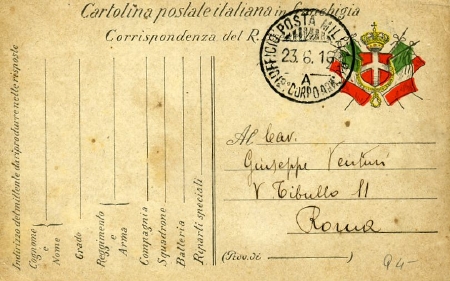 Cartolina postale italiana in franchigia
Corrispondenza del R.
UFFICIO POSTA MILITARE
23.6.16
A
CORPO
Indirizzo del mittente da riprodurre nelle risposte
Cognome e Nome
Grado
Reggimento e Arma
Compagnia
Squadrone
Batteria
Riparti speciali
Al Cav.
Giuseppe Venturi
V Tibullo 11
Roma
(Prov. di )
Q4-